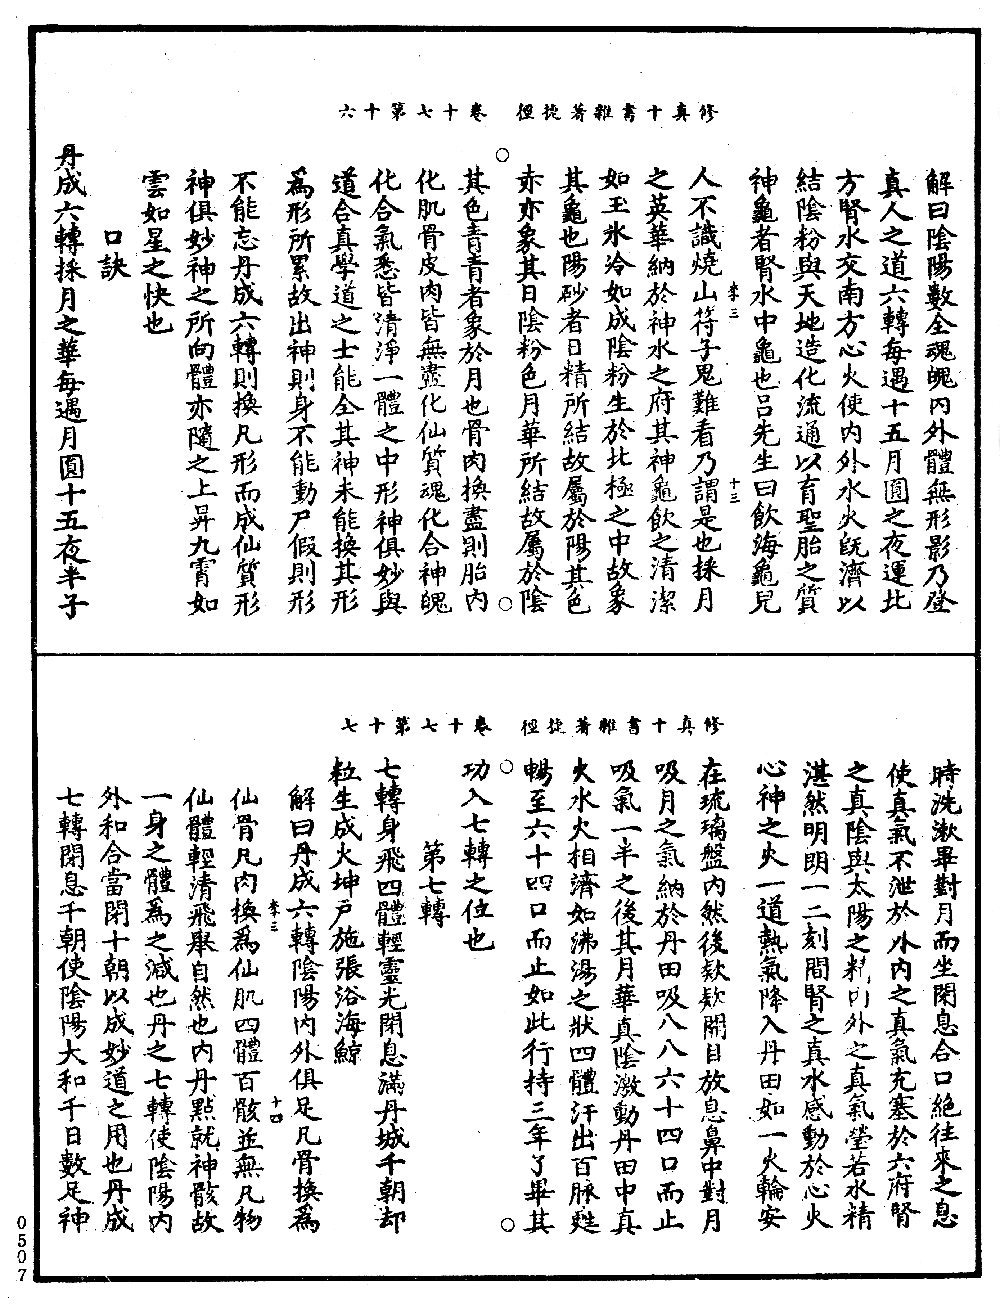 修真十書雜著捷徑　卷十七第十六
解曰陰陽數全魂魄內外體無形影乃登
真人之道六轉每遇十五月圓之夜運北
方腎水交南方心火使內外水火既濟以
結陰粉與天地造化流通以育聖胎之質
神龜者腎水中龜也呂先生曰飲海龜兒
人不識燒山符子鬼難看乃謂是也採月
之英華納於神水之府其神龜飲之清潔
如玉氷冷如成陰粉生於北極之中故象
其龜也陽砂者日精所結故屬於陽其色
赤亦象其日陰粉色月華所結故屬於陰
其色青青者象於月也骨肉換盡則胎內
化肌骨皮肉皆無盡化仙質魂化合神魄
化合氣悉皆清淨一體之中形神俱妙與
道合真學道之士能全其神未能換其形
為形所累故出神則身不能動尸假則形
不能忘丹成六轉則換凡形而成仙質形
神俱妙神之所向體亦隨之上昇九霄如
雲如星之快也
口訣
丹成六轉採月之華每遇月圓十五夜半子
李三
十三
修真十書雜著捷徑　卷十七第十七
時洗漱畢對月而坐閉息合口絕往來之息
使真氣不泄於外內之真氣充塞於六府腎
之真陰與太陽之精向外之真氣瑩若水精
湛然明明一二刻間腎之真水感動於心火
心神之火一道熱氣降入丹田如一火輪安
在琉璃盤內然後欵欵開目放息鼻中對月
吸月之氣納於丹田吸八八六十四口而止
吸氣一半之後其月華真陰激動丹田中真
火水火相濟如沸湯之狀四體汗出百脉甦
暢至六十四口而止如此行持三年了畢其
功入七轉之位也
第七轉
七轉身飛四體輕靈光閉息滿丹城千朝却
粒生成火坤戶施張浴海鯨
解曰丹成六轉陰陽內外俱足凡骨換為
仙骨凡肉換為仙肌四體百骸並無凡物
仙體輕清飛舉自然也內丹點就神骸故
一身之體為之減也丹之七轉使陰陽內
外和合當閉十朝以成妙道之用也丹成
七轉閉息千朝使陰陽大和千日數足神
李三
十四
0507